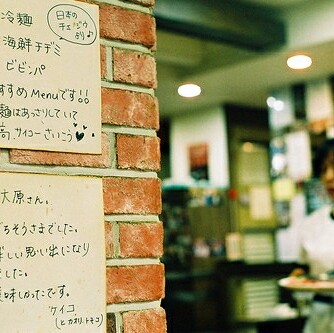 冷麺
海鮮チヂミ
ビビンパ
すすめMenuです!!
麺はあっさりしていて
高 サイコー さいこう
日本の
大原さん。
ちそうさまでした。
しい思い出になり
した。
味しかったです。
ケイコ
(ヒカオリ、トモコ)